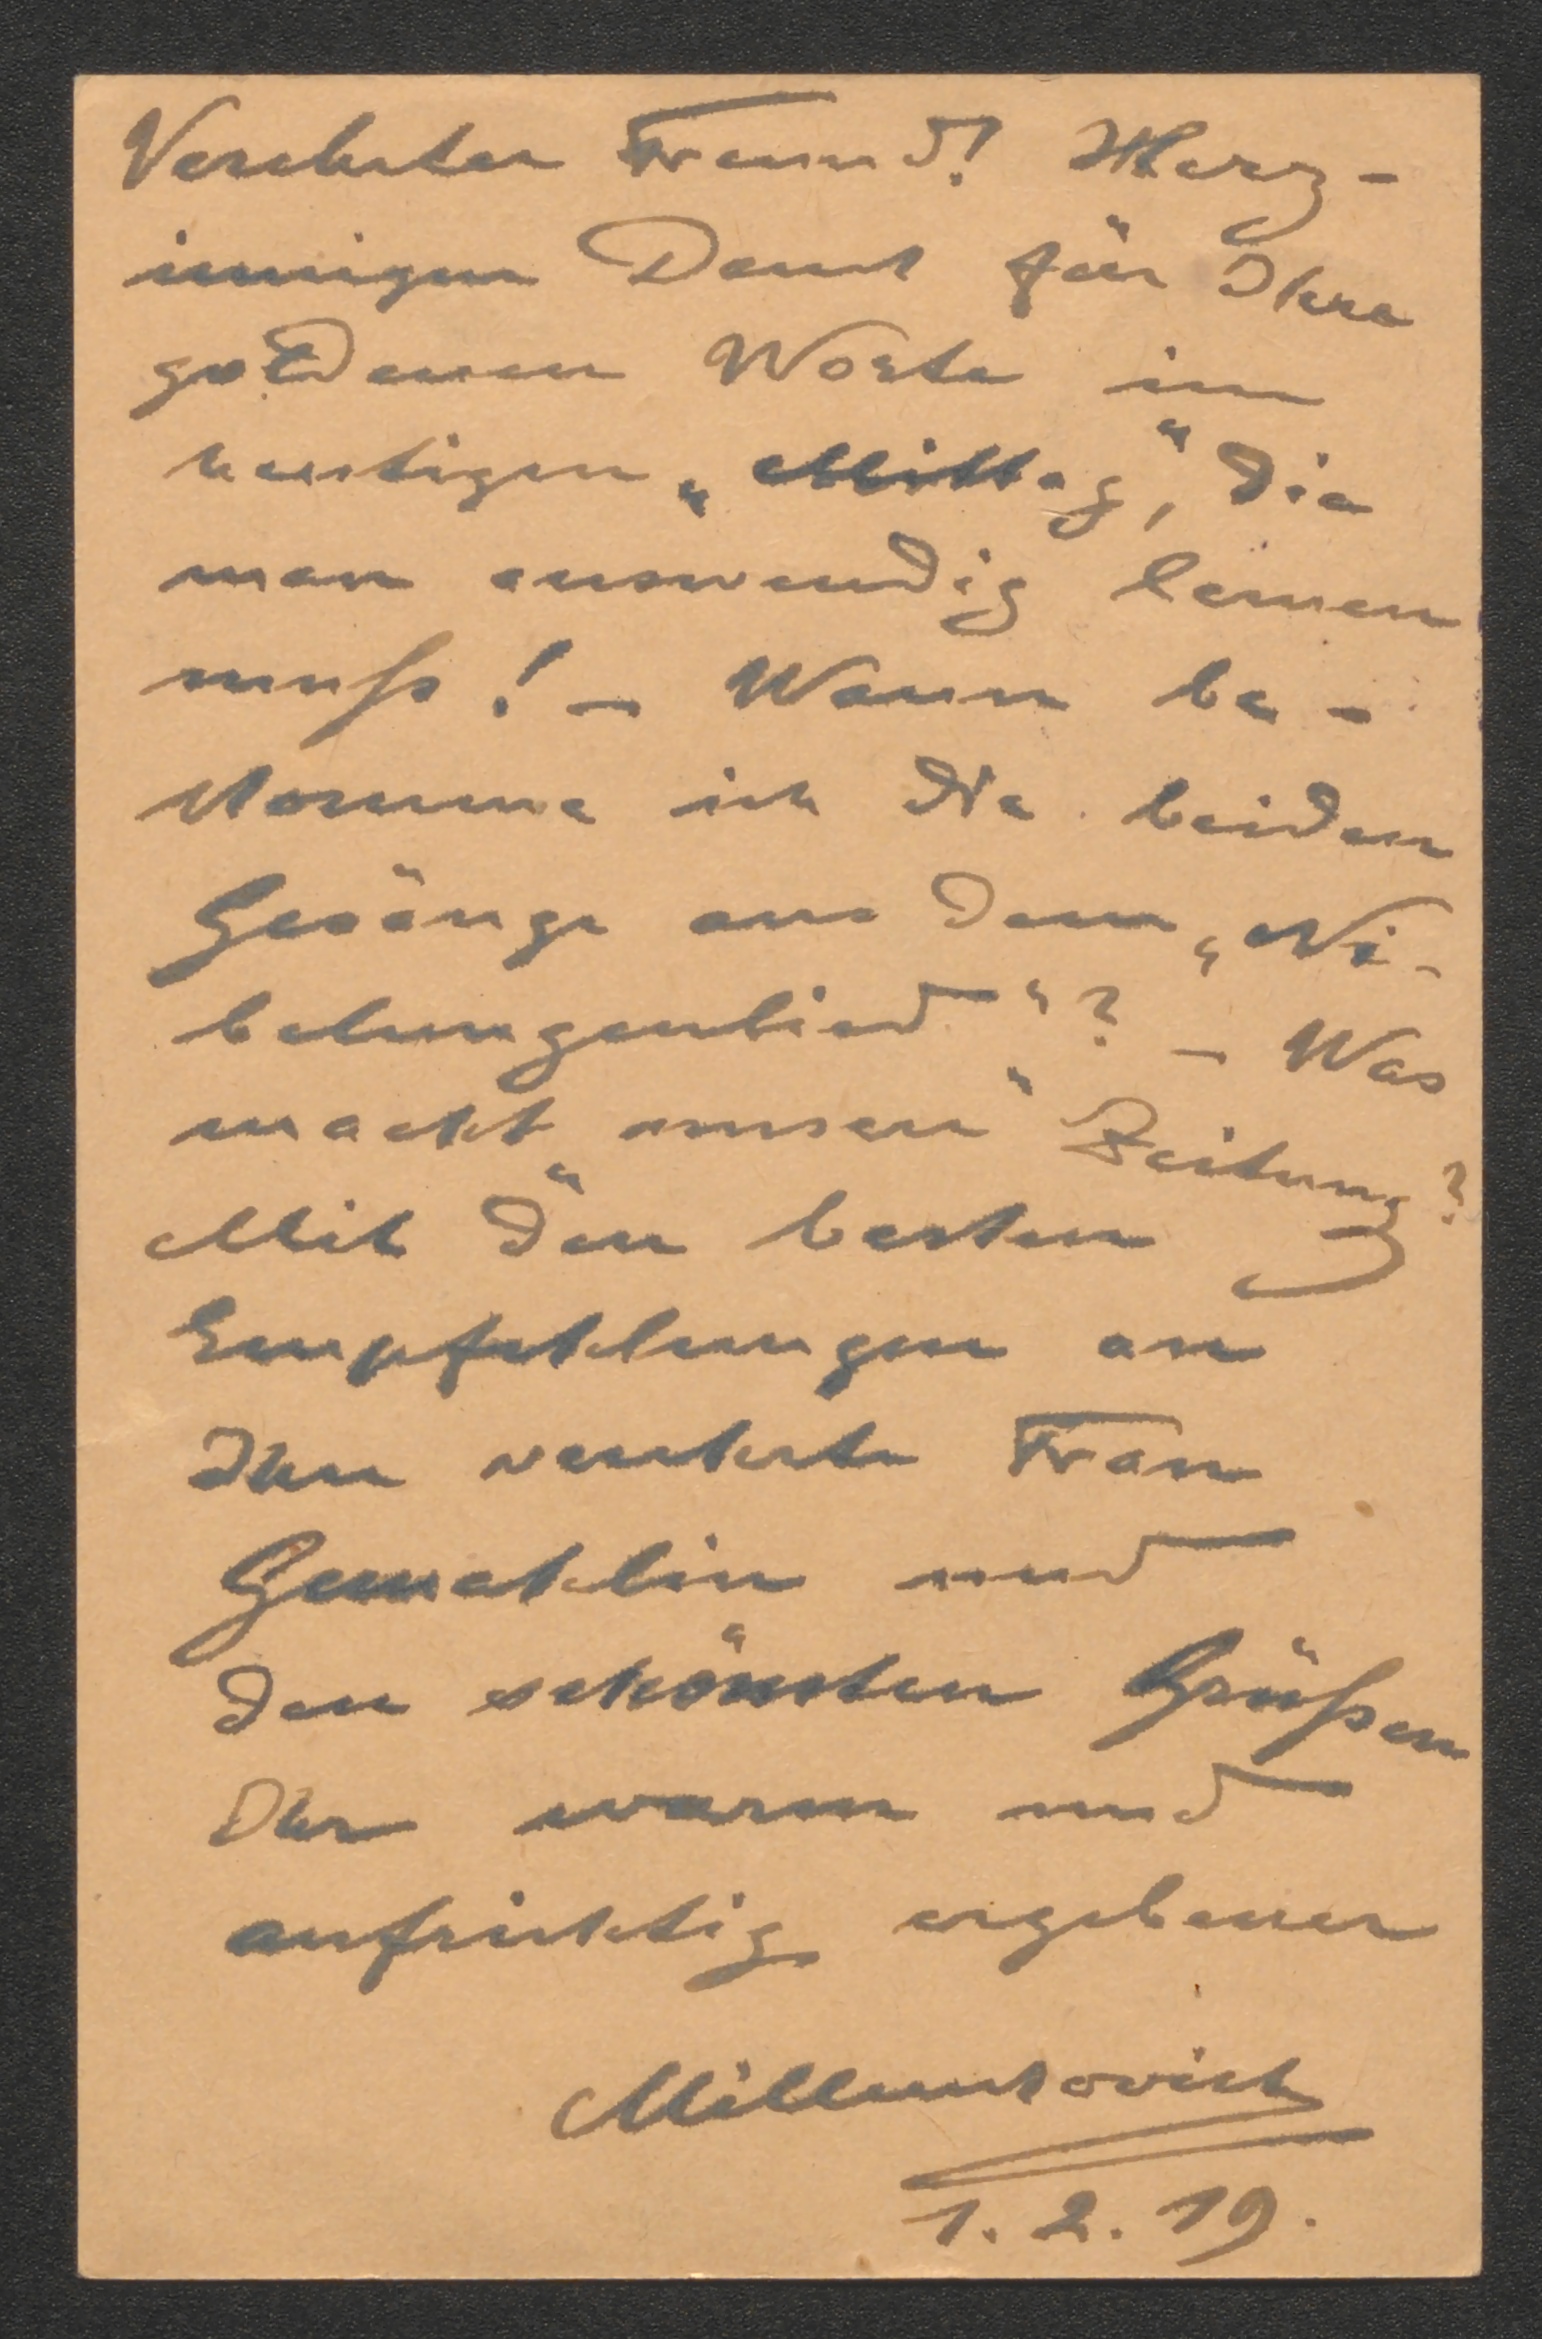 Verehrter Freund! Herz-
innigen Dank für Ihre
goldenen Worte im
heutigen „Mittag“, die
man auswendig lernen
muß! – Wann be-
komme ich die beiden
Gesänge aus dem „Ni-
belungenlied“? – Was
macht „unsere“ Zeitung?
Mit den besten
Empfehlungen an
Ihre verehrte Frau
Gemahlin und
den schönsten Grüßen
Ihr warm und
aufrichtig ergebener
Millenkovich
1. 2. 19.